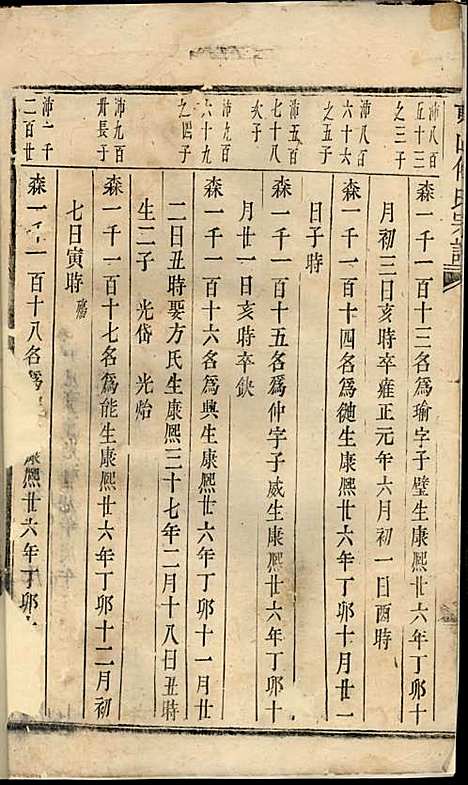 沛八百
五十三
之三子
森一千一百十三名爲瑜字子璧生康熙廿六年丁卯十
月初三日亥時卒雍正元年六月初一日酉時
沛八百
六十六
之五子
森一千一百十四名爲
生康熙廿六年丁卯十月廿一
日子時
沛五百
七十八
次子
森一千一百十五名爲仲字子威生康熙廿六年丁卯十
月廿一日亥時卒缺
沛九百
六十九
之四子
森一千一百十六名爲興生康熙廿六年丁卯十一月廿
二日丑時娶方氏生康熙三十七年二月十八日丑時
生二子 光岱 光炲
沛九百
卅長子
森一千一百十七名爲能生康熙廿六年丁卯十二月初
七日寅時 殤
沛一千
二百廿
森一千一百十八名爲
康熙廿六年丁卯十
氏宗譜